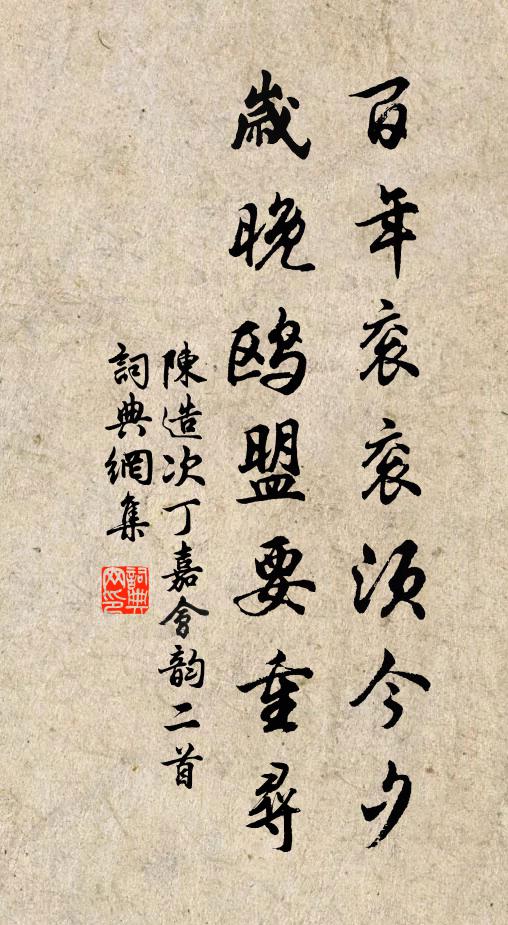 百年衮衮须今夕
歲晚鸥盟要重尋
陳造次丁嘉會韵二首
詞典網集
詞典網印